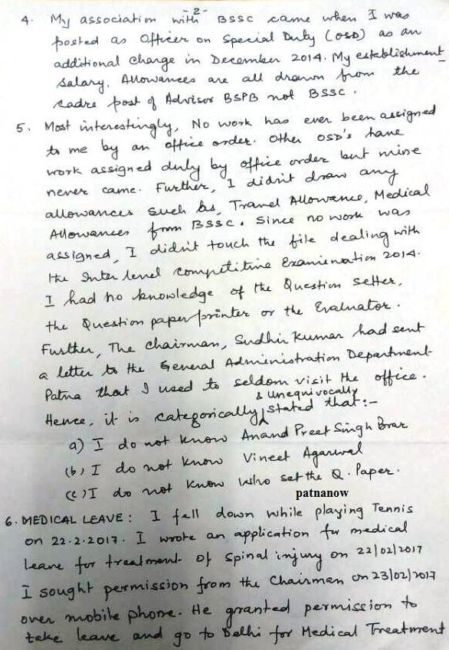 -2-
4. My association with BSSC came when I was
posted as Officer on Special Duty (OSD) as an
additional charge in December 2014. My establishment
Salary, Allowances are all drawn from the
cadre post of Advisor BSPB not BSSC.
5. Most interestingly, No work has ever been assigned
to me by an office order. Other OSD's have
work assigned duly by office order but mine
never came. Further, I didn't draw any
allowances such as, Travel Allowance, Medical
Allowances from BSSC. Since no work was
assigned, I didn't touch the file dealing with
the Inter level competitive Examination 2014.
I had no knowledge of the Question setter,
the Question paper/printer or the Evaluator.
Further, The Chairman, Sudhir Kumar had sent
a letter to the General Administration Department
Patna that I used to seldom visit the office.
& unequivocally
Hence, it is categorically stated that:-
a) I do not know Anand Preet Singh Brar
(b) I do not know Vineet Agarwal
(c) I do not know who set the Q. Paper.
patnanow
6. MEDICAL LEAVE: I fell down while playing Tennis
on 22-2-2017. I wrote an application for medical
leave for treatment of spinal injury on 22/02/2017
I sought permission from the Chairman on 23/02/2017
over mobile phone. He granted permission to
take leave and go to Delhi for Medical Treatment